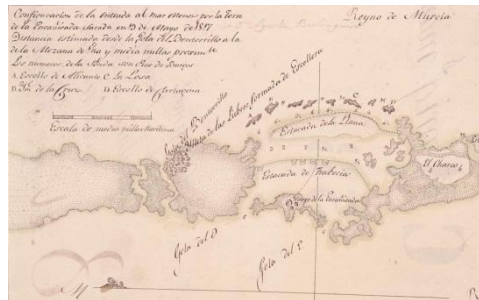 Configuracion de la entrada al mar menor por la Torre
de la Encañizada sacada en 15 de Mayo de 1817
Distancia estimada desde la Gola del Dentorrillo a la
de la Mezana de una y media millas proxim.te
Los numeros de la Sonda son Pies de Burgos
A. Escollo de C. La Losa
B. Yd. de la Cruz D. Escollo de Cartagena
Escala de media milla Maritima
Reyno de Murcia
Gola del Dentorrillo
formada de Escollera
Estacada de la Llana
Estacada de
Torre de la Encañizada
El Charco
Gola del
Gola del